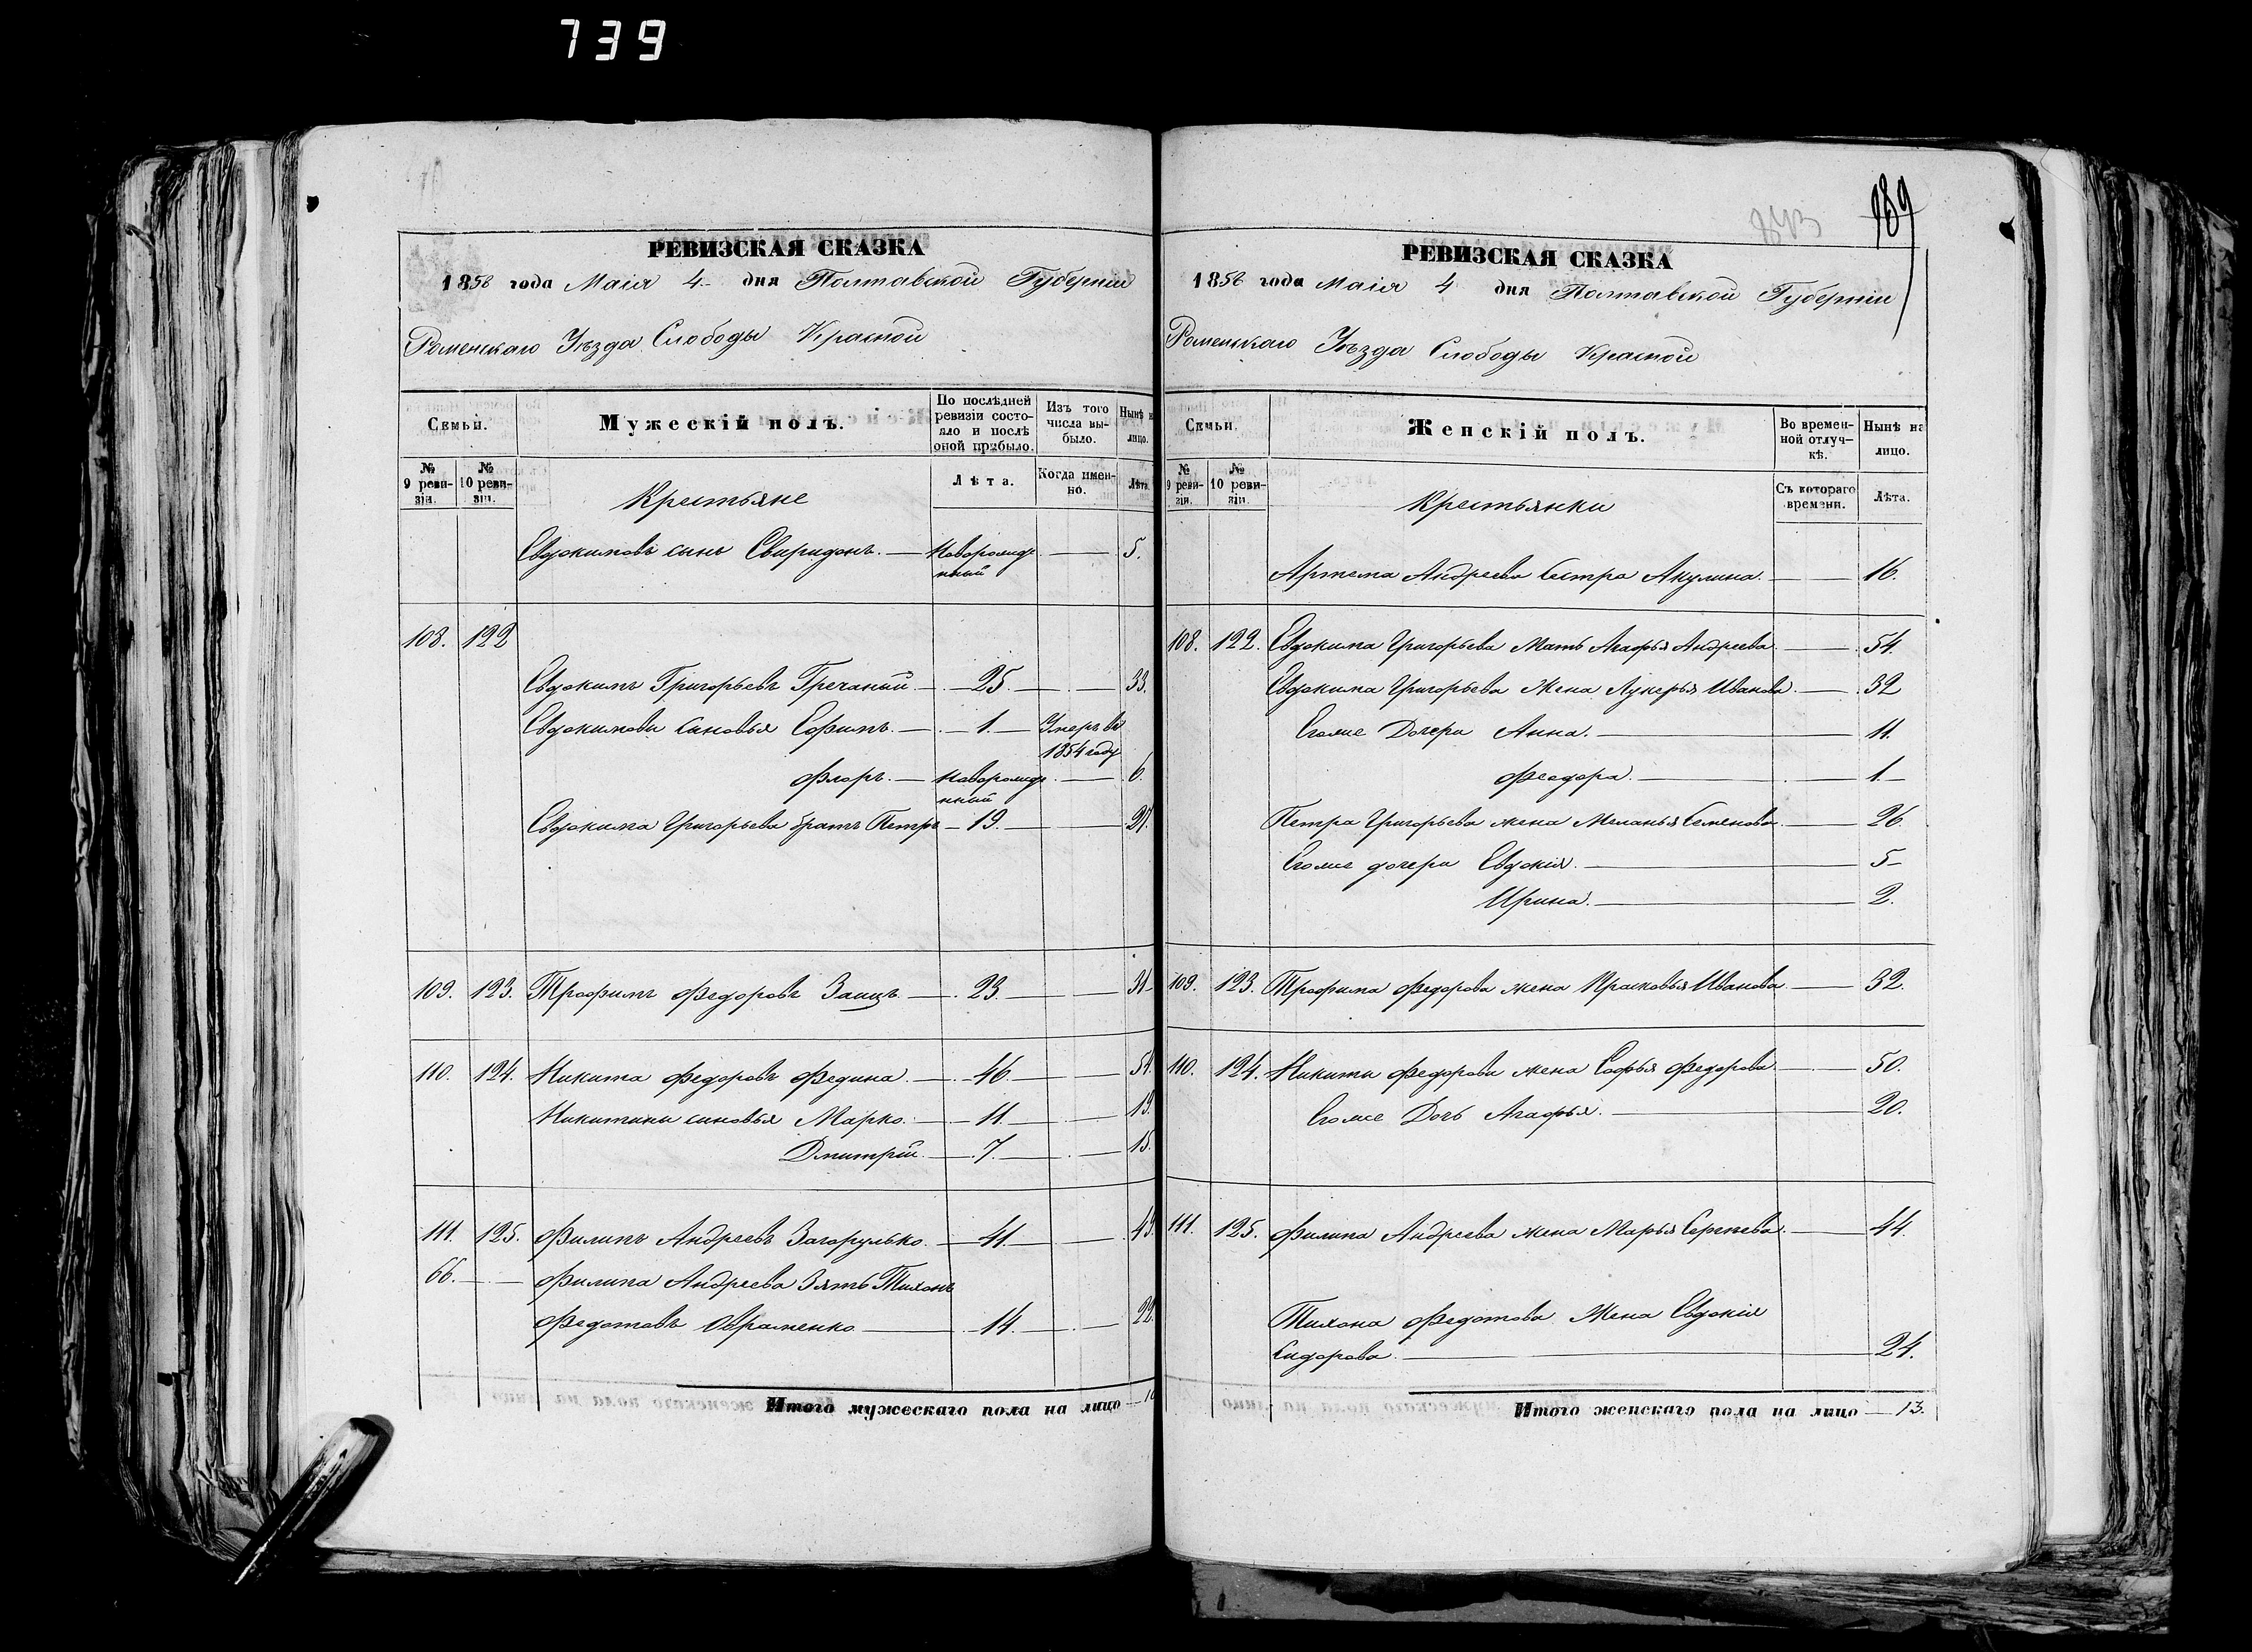 739
РЕВИЗСКАЯ СКАЗКА
1858 года Маія 4 дня Полтавской Губерніи
Роменскаго Уѣзда Слободы Красной
Семьи.
Мужескій полъ.
По послѣдней ревизіи состояло и послѣ оной прибыло.
Изъ того числа выбыло.
Нынѣ н лицо.
№ 9 ревизіи.
№ 10 ревизіи.
Крестьяне
Лѣта.
Когда именно.
Лѣта.
Евдокимовъ сынъ Свиридонъ. — Новорожденный — 5.
108. 122
Евдокимъ Григорьевъ Гречаный. — 25. — 33.
Евдокимови сыновья Ефимъ. — 1. — Умеръ въ 1854 году
Флоръ. — Новорожденный — 6.
Евдокима Григорьева братъ Петръ — 19. — 27.
109. 123. Трофимъ Федоровъ Заицъ. — 23. — 31
110. 124. Никита Федоровъ Федина. — 46. — 54.
Никитини сыновья Марко. — 11. — 19.
Дмитрій. — 7. — 15.
111. 125. Филипъ Андреевъ Загорулько. — 41. — 49.
66. — Филипа Андреева Зять Тихонъ
Федотовъ Овраменко — 14. — 22.
Итого мужескаго пола на лицо — 10
189
РЕВИЗСКАЯ СКАЗКА
1858 года Маія 4 дня Полтавской Губерніи
Роменскаго Уѣзда Слободы Красной
Семьи.
Женскій полъ.
Во временной отлучкѣ.
Нынѣ на лицо.
№ 9 ревизіи.
№ 10 ревизіи.
Крестьянки
Съ котораго времени.
Лѣта.
Артема Андреева Сестра Акулина. — 16.
108. 122. Евдокима Григорьева Мать Агафья Андреева — 54.
Евдокима Григорьева Жена Лукерья Иванова. — 32
Егоже Дочери Анна. — 11.
Феодора. — 1.
Петра Григорьева жена Меланья Семенова. — 26.
Егоже дочери Евдокія. — 5
Ирина. — 2.
109. 123. Трофима Федорова жена Прасковья Иванова — 32.
110. 124. Никити Федорова жена Софья Федорова — 50.
Егоже Дочь Агафья. — 20.
111. 125. Филипа Андреева жена Марья Сергѣева. — 44.
Тихона Федотова Жена Евдокія
Сидорова. — 24.
Итого женскаго пола на лицо — 13.